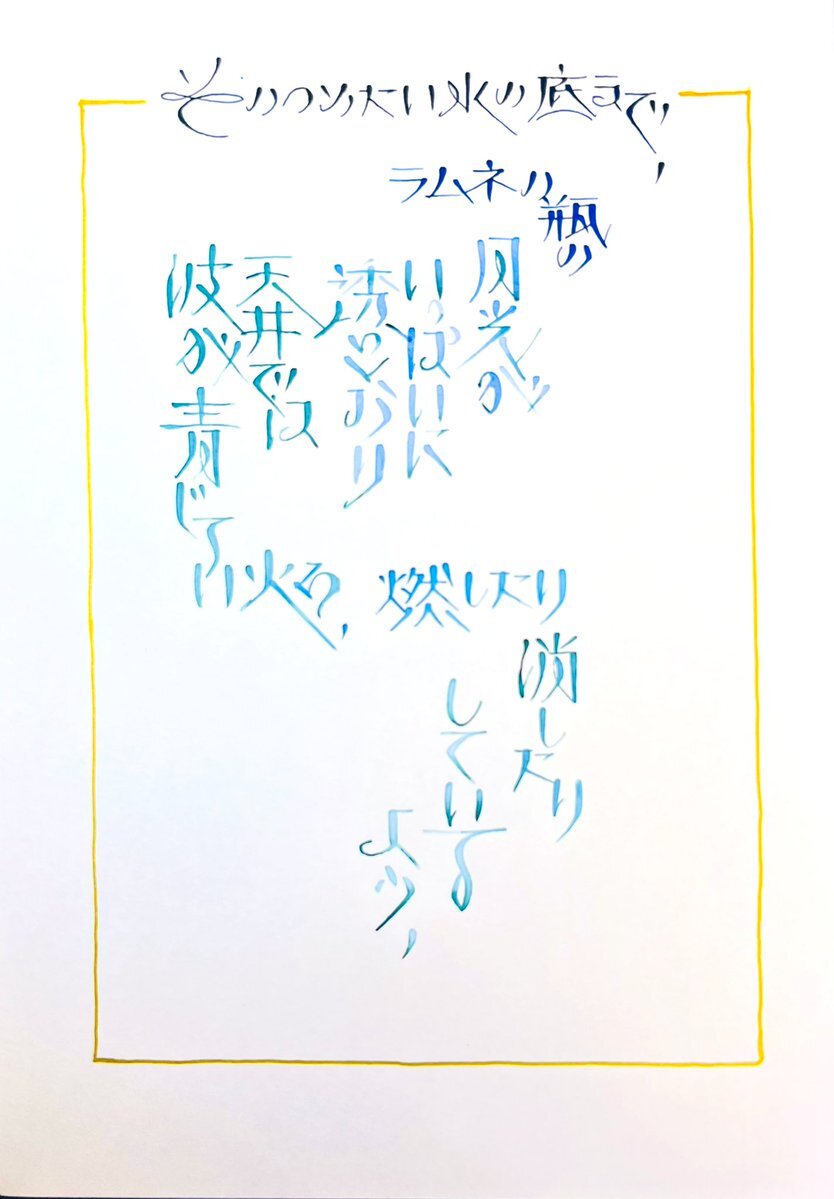 そのつめたい水の底まで、
ラムネの
瓶の
月光が
いっぱいに
透とおり
天井では
波が青じろ
い火を、燃したり
消したり
している
よう、